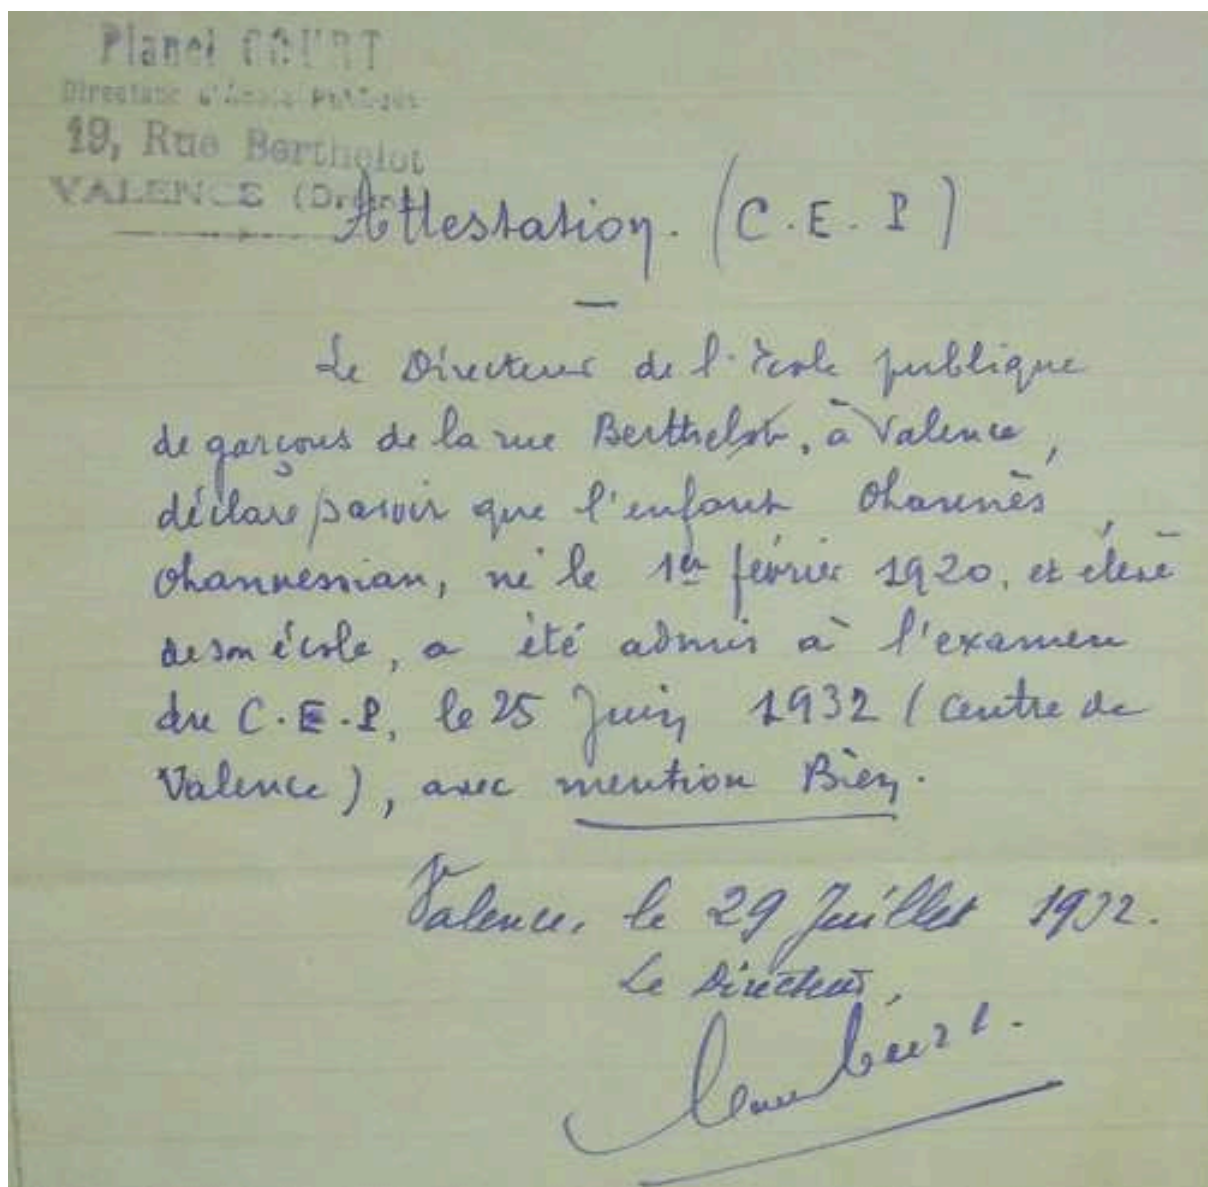 Planel COURT
Directeur d'École Publique
19, Rue Berthelot
VALENCE (Drôme)
Attestation. (C.E.P)
Le Directeur de l'école publique
de garçons de la rue Berthelot, à Valence,
déclare savoir que l'enfant Ohannès
Ohannessian, né le 1er février 1920, et élève
de son école, a été admis à l'examen
du C.E.P, le 25 Juin 1932 (centre de
Valence), avec mention Bien.
Valence, le 29 Juillet 1932.
Le Directeur,